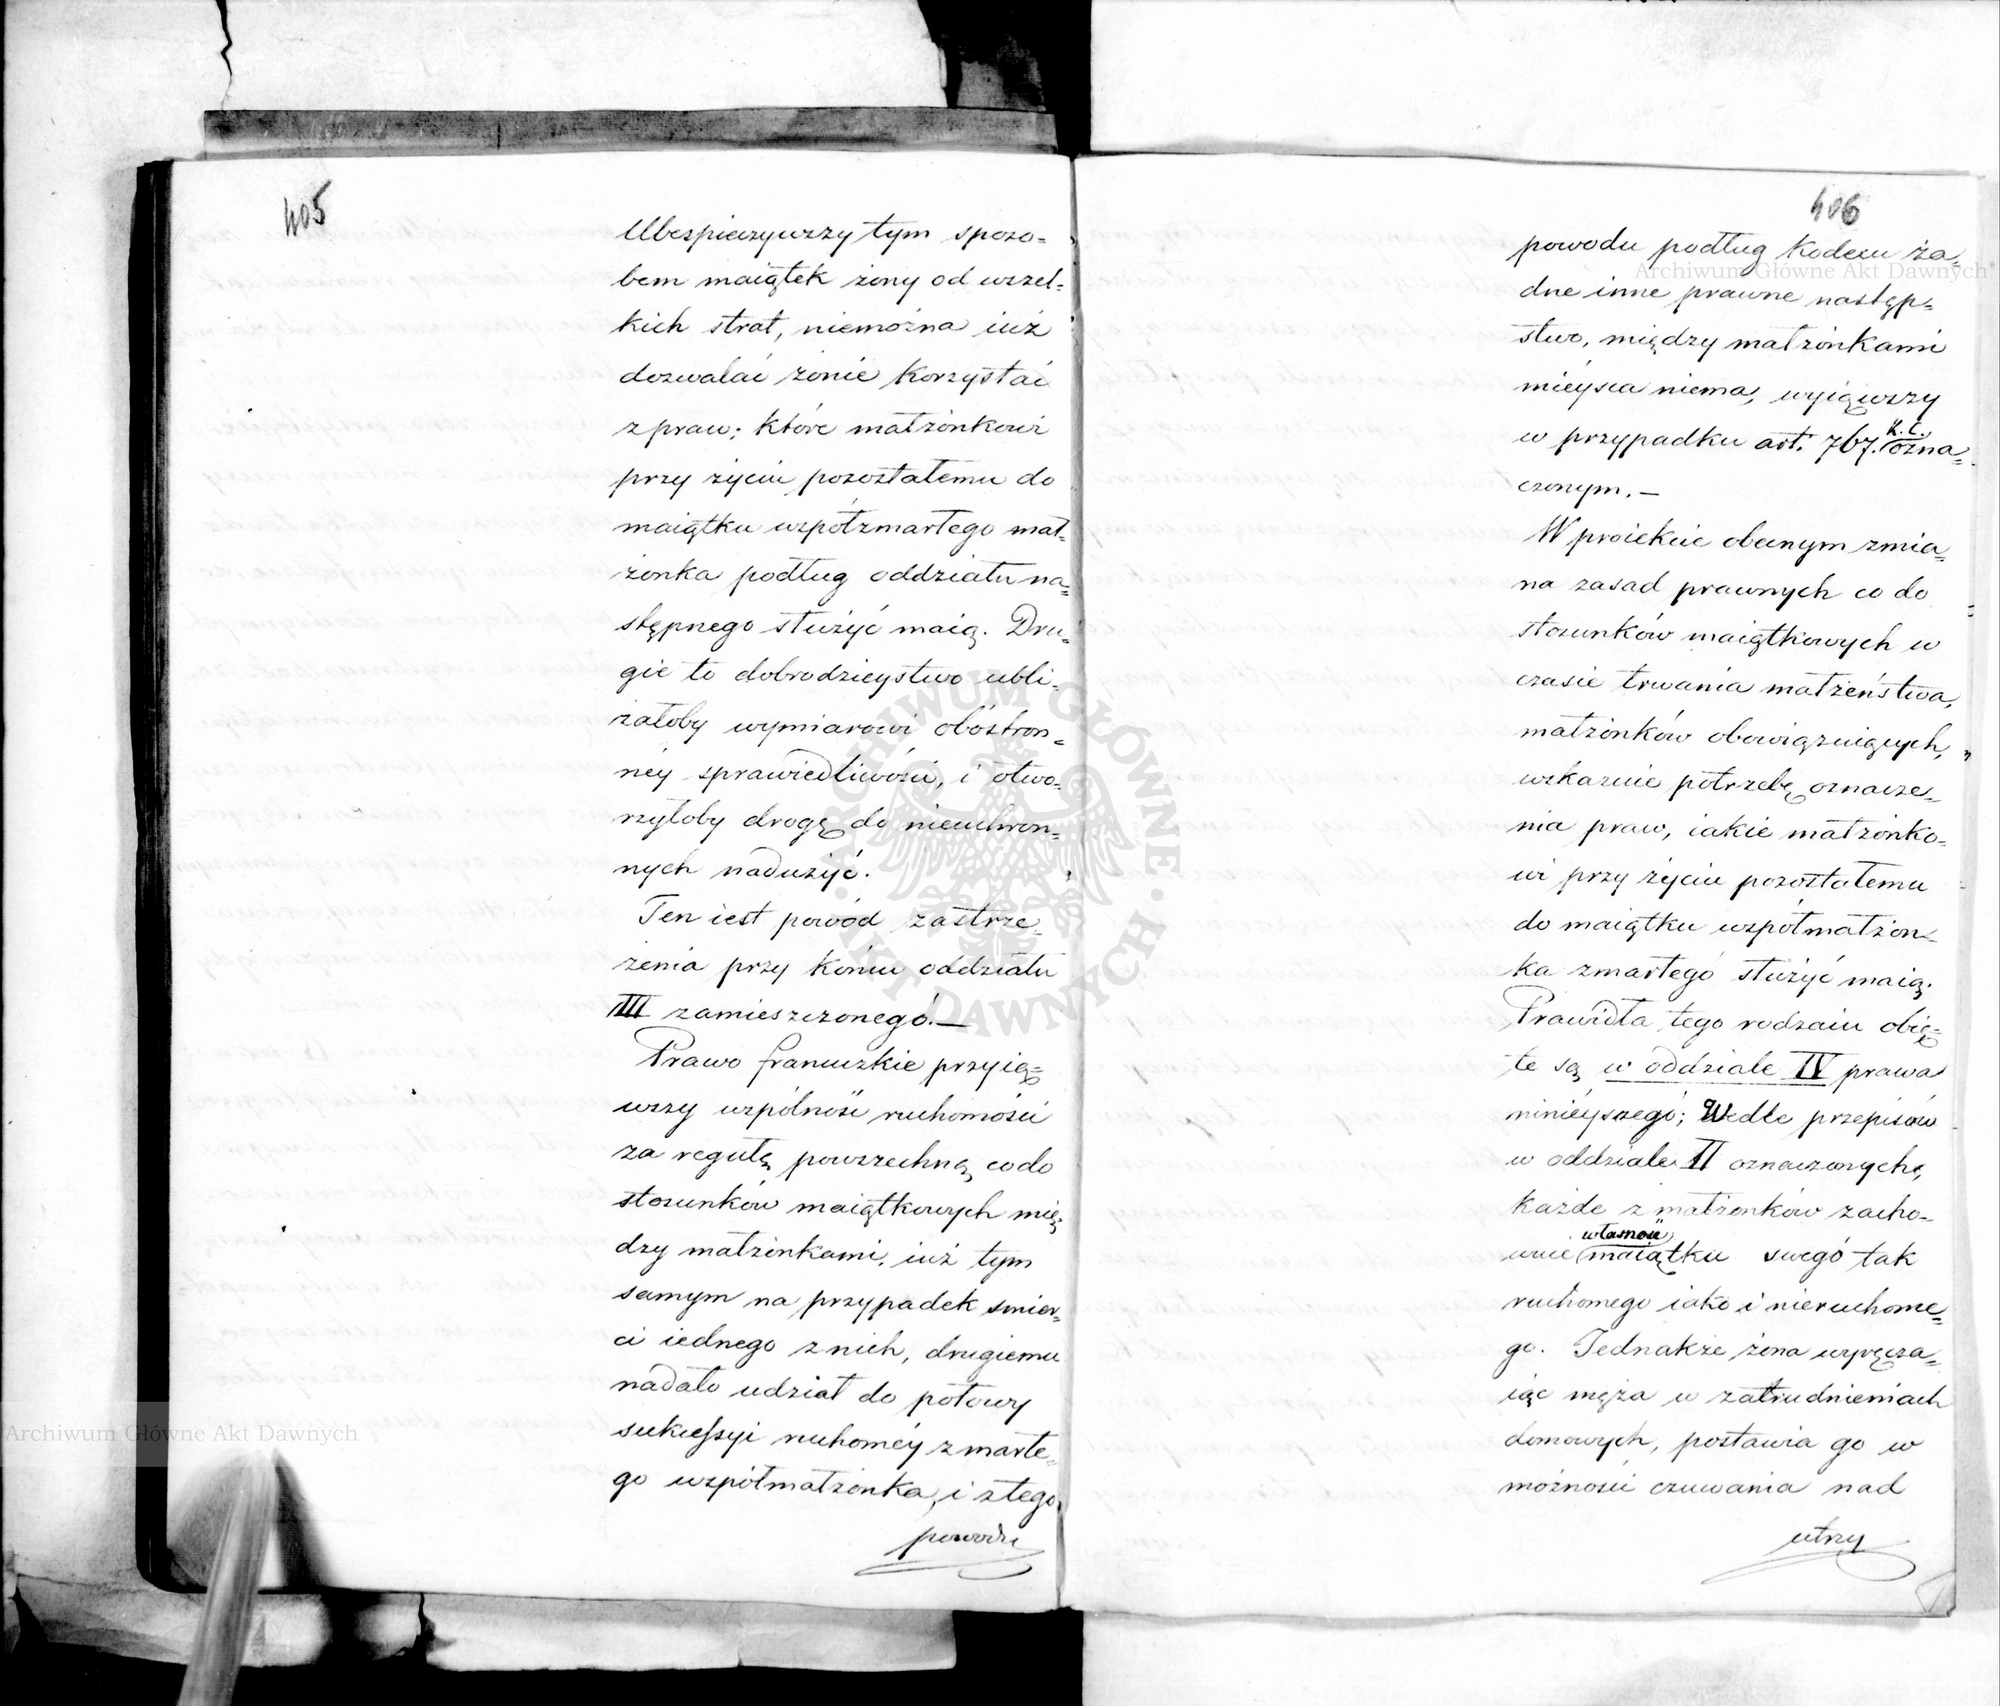 405
Ubespieczywszy tym sposo=
bem maiątek żony od wszel=
kich strat, niemożna iuż
dozwalać żonie korzystać
z praw; które małżonkowi
przy życiu pozostałemu do
maiątku współzmarłego mał=
żonka podług oddziału na=
stępnego służyć maią. Dru=
gie to dobrodzieystwo ubli=
żałoby wymiarowi obóstron=
néy sprawiedliwości, i otwo=
rzyłoby drogę do nieuchron=
nych nadużyć.
Ten iest powód zastrze=
żenia przy końcu oddziału
III zamieszczonego.—
Prawo francuzkie przyią=
wszy wspólność ruchomości
za regułę powszechną co do
stosunków maiątkowych mię=
dzy małżonkami, iuż tym
samym na przypadek śmier=
ci iednego z nich, drugiemu
nadało udział do połowy
sukcessyi ruchoméy zmarłe=
go współmałżonka, i z tego
powodu
406
powodu podług Kodexu ża=
dne inne prawne następ=
stwo, między małżonkami
mieysca niema, wyiąwszy
w przypadku art. 767. K.C. ozna=
czonym.—
W proiekcie obecnym zmia=
na zasad prawnych co do
stosunków maiątkowych w
czasie trwania małżeństwa,
małżonków obowiązuiących,
wskazuie potrzebę oznacze=
nia praw, iakie małżonko=
wi przy życiu pozostałemu
do maiątku współmałżon=
ka zmarłego służyć maią.
Prawidła tego rodzaiu obię=
te są w oddziale IV prawa
ninieyszego; Wedle przepisów
w oddziale II oznaczonych,
każde z małżonków zacho=
wuie własność maiątku swego tak
ruchomego iako i nieruchome=
go. Jednakże żona wyręcza=
iąc męża w zatrudnieniach
domowych, postawia go w
możności czuwania nad
utrzy
Archiwum Główne Akt Dawnych
Archiwum Główne Akt Dawnych
ARCHIWUM GŁÓWNE
AKT DAWNYCH